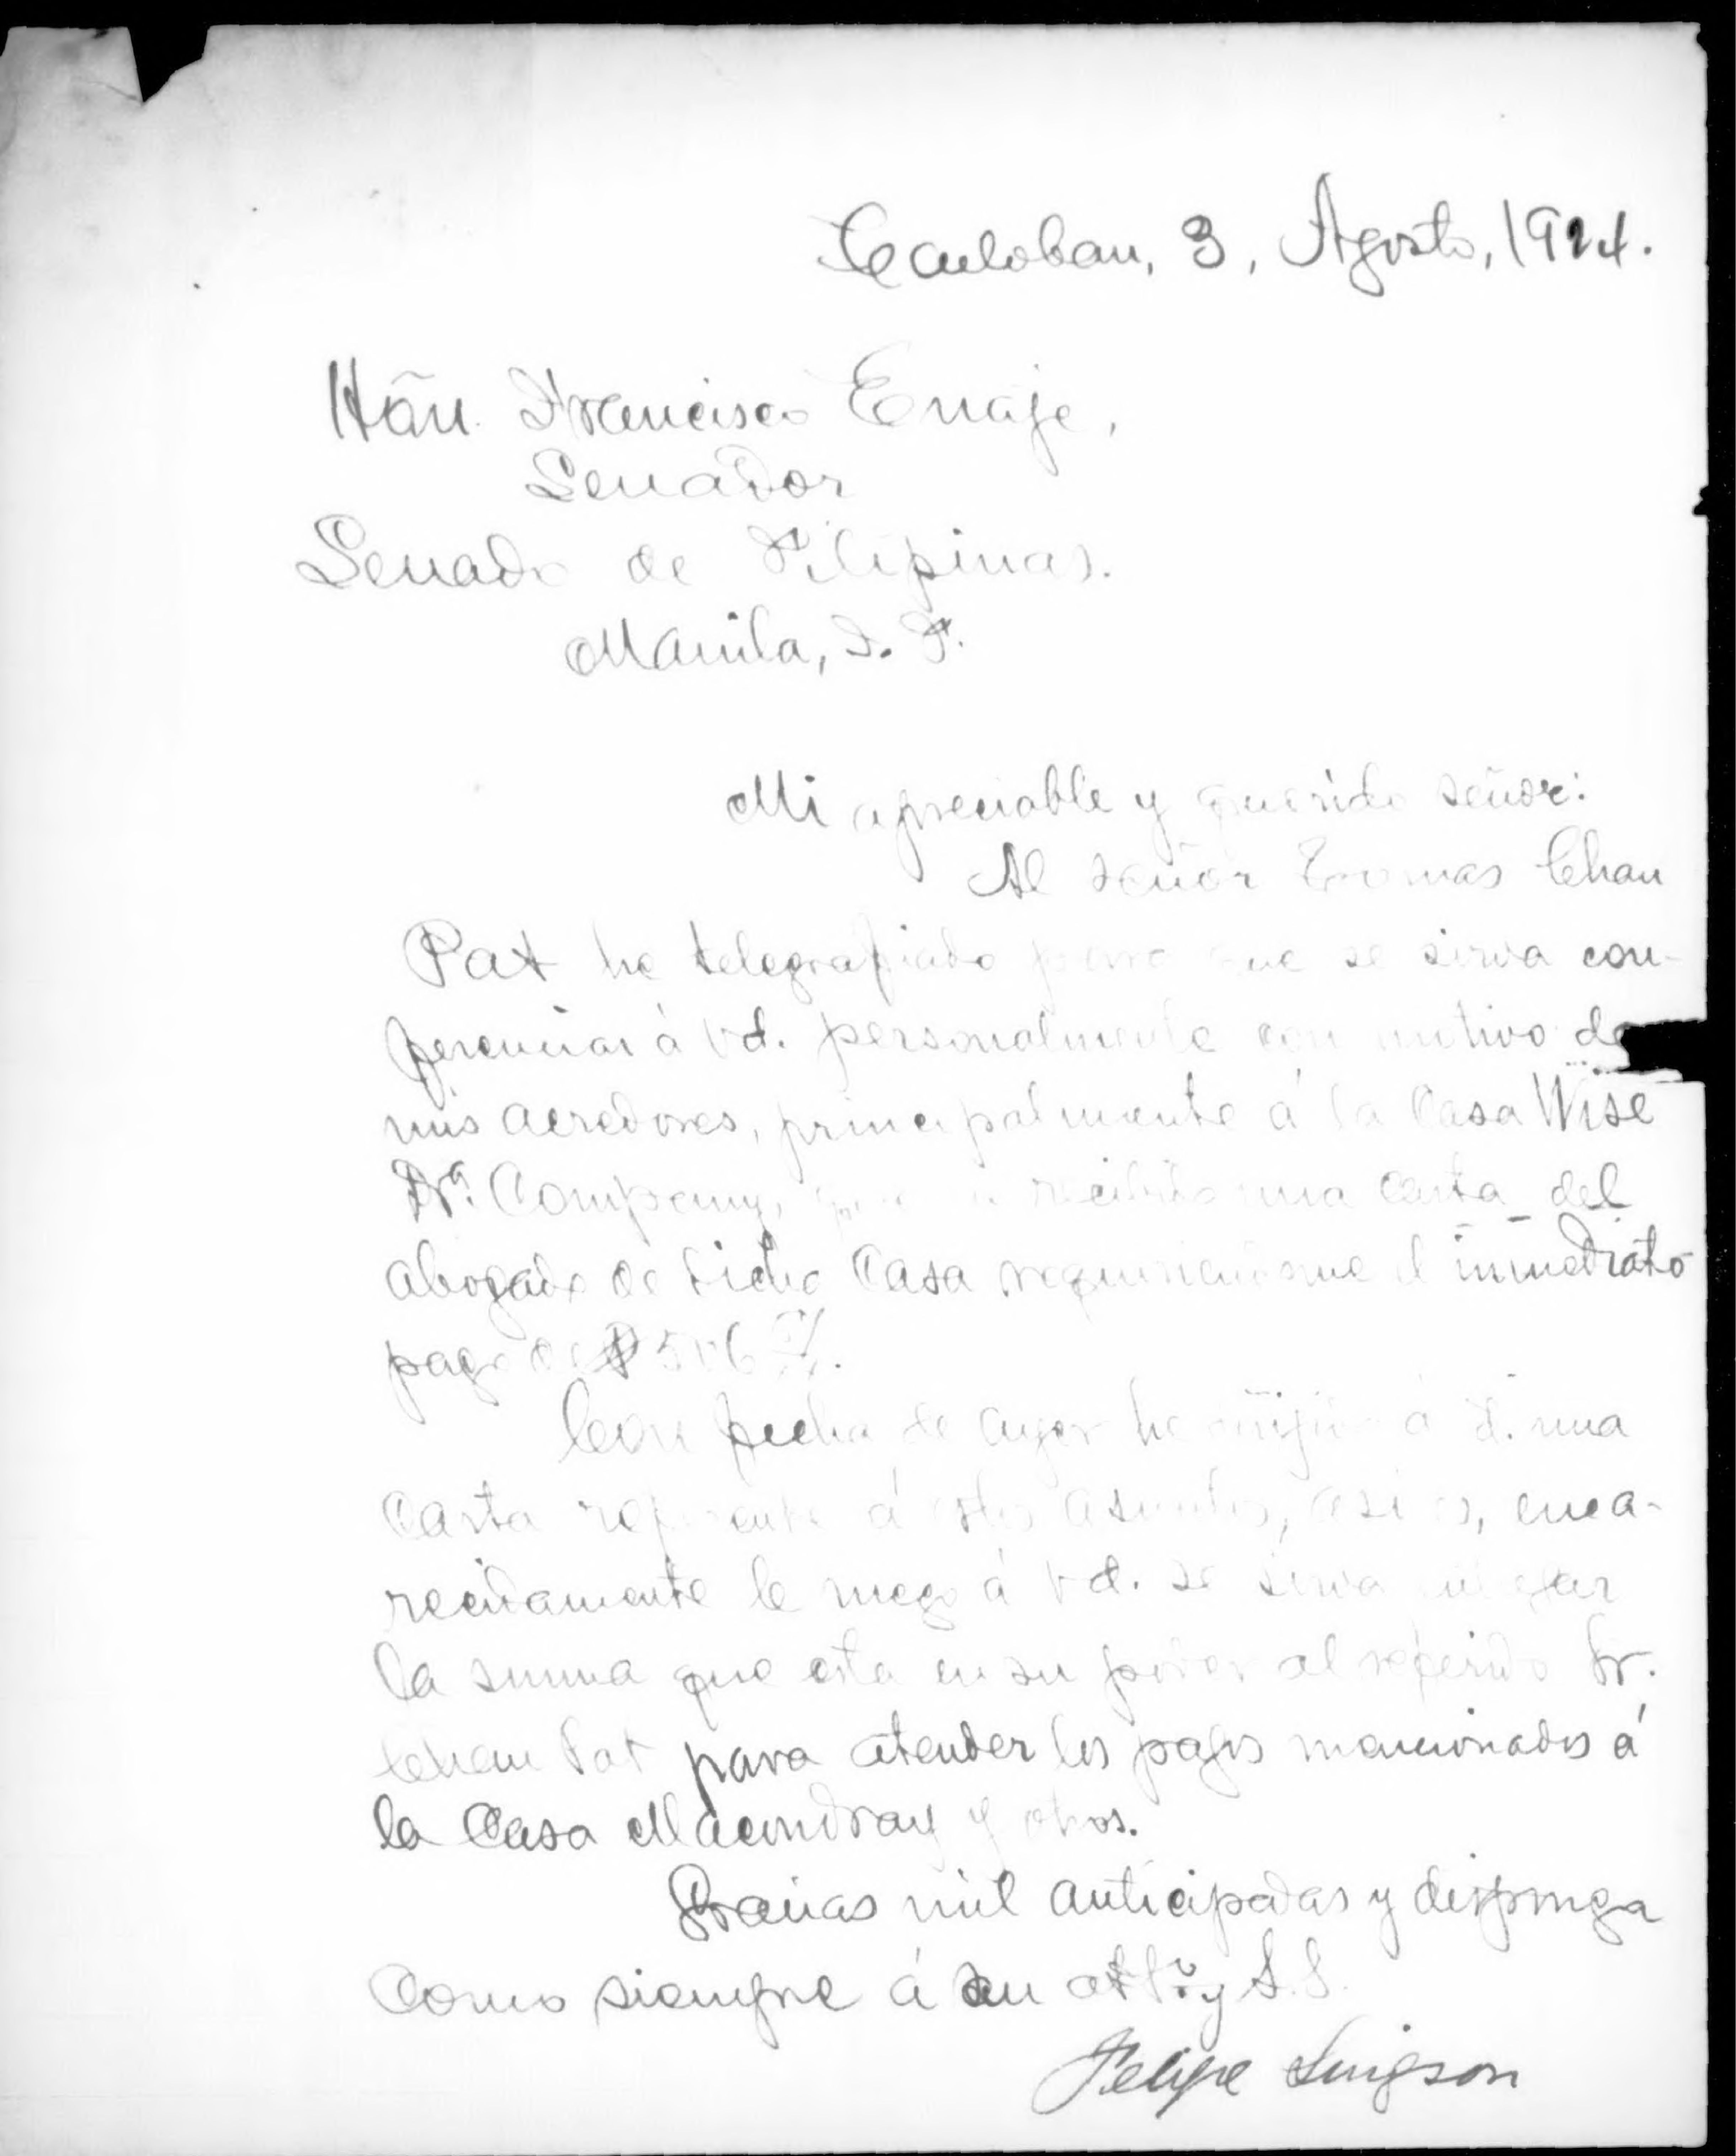 Tacloban, 3, Agosto, 1924.
Hon. Francisco Enaje,
Senador
Senado de Filipinas.
Manila, I. F.
Mi apreciable y querido señor:
Al señor Tomas Chan
Pat he telegrafiado para que se sirva con-
ferenciar á Vd. personalmente con motivo de
mis acredores, principalmente á la Casa Wise
Company, recibido una carta del
abogado de dicha Casa requiriendome el inmediato
pago de ₱506
Con fecha de ayer he dirijido á Vd. una
carta referente á estos asuntos, asi es, enca-
recidamente le ruego á Vd. se sirva entregar
la suma que esta en su poder al referido Sr.
Chan Pat para atender los pagos mencionados á
la Casa Macondray y otros.
Gracias mil anticipadas y disponga
como siempre á su att° y S.S.
Felipe Singson